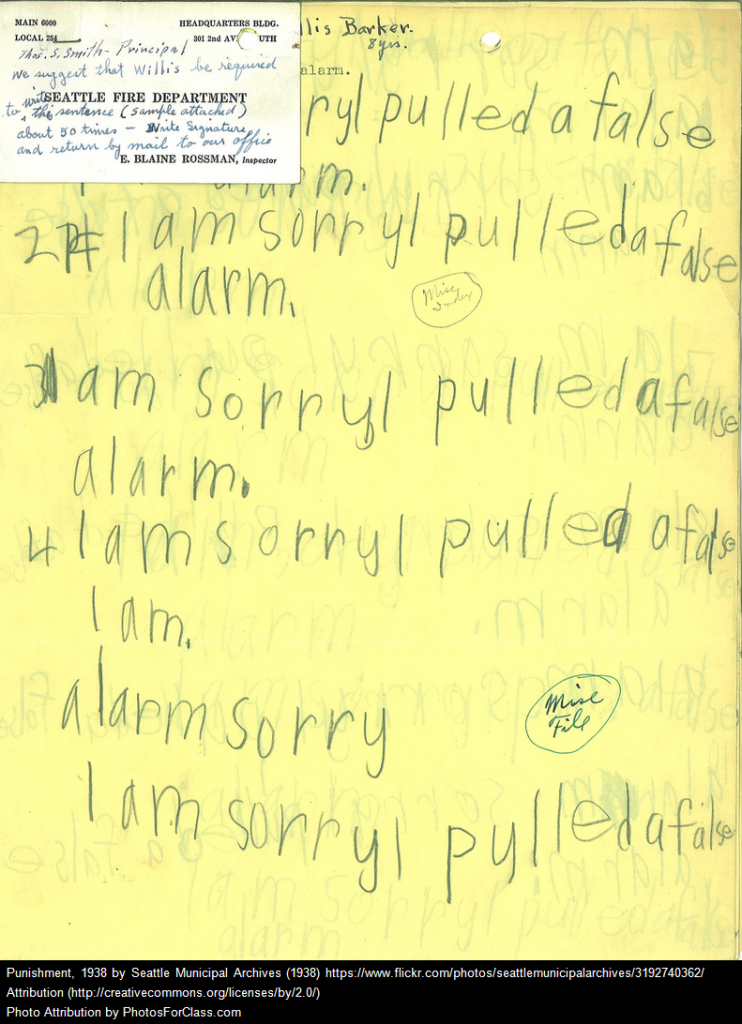 MAIN 6000 HEADQUARTERS BLDG.
LOCAL 254 301 2nd AV UTH
Thos. S. Smith - Principal
We suggest that Willis be required
to write the sentence (sample attached)
SEATTLE FIRE DEPARTMENT
about 50 times - Write Signature
and return by mail to our office
E. BLAINE ROSSMAN, Inspector
llis Barker.
8 yrs.
alarm.
ry I pulled a false
alarm.
2 I am sorry I pulled a false
alarm.
Misc
Index
3 I am sorry I pulled a false
alarm.
4 I am sorry I pulled a false
I am.
alarm sorry
Misc
File
I am sorry I pylled a false
Punishment, 1938 by Seattle Municipal Archives (1938) https://www.flickr.com/photos/seattlemunicipalarchives/3192740362/
Attribution (http://creativecommons.org/licenses/by/2.0/)
Photo Attribution by PhotosForClass.com